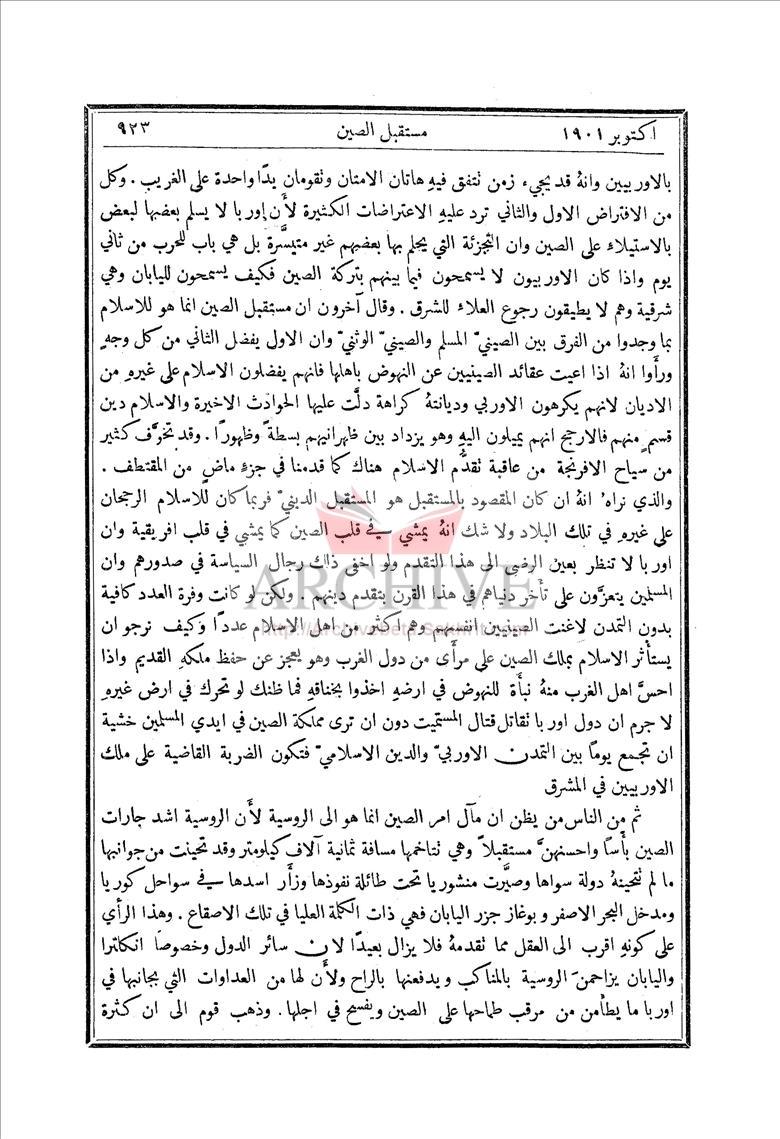 اكتوبر ١٩٠١ مستقبل الصين ٩٢٣
بالاوربيين وانهُ قد يجيء زمن نتفق فيهِ هاتان الامتان ونقومان يدًا واحدة على الغريب . وكل
من الافتراض الاول والثاني ترد عليهِ الاعتراضات الكثيرة لأن اوربا لا يسلم بعضها لبعض
بالاستيلاء على الصين وان التجزئة التي يحلم بها بعضهم غير متيسَّرة بل هي باب للحرب من ثاني
يوم واذا كان الاوربيون لا يسمحون فيما بينهم بتركة الصين فكيف يسمحون لليابان وهي
شرقية وهم لا يطيقون رجوع العلاء للشرق . وقال آخرون ان مستقبل الصين انما هو للاسلام
بما وجدوا من الفرق بين الصينيّ المسلم والصينيّ الوثنيّ وان الاول يفضل الثاني من كل وجهٍ
ورأوا انهُ اذا اعيت عقائد الصينيين عن النهوض باهلها فانهم يفضلون الاسلام على غيرهِ من
الاديان لانهم يكرهون الاوربي وديانتهُ كراهة دلَّت عليها الحوادث الاخيرة والاسلام دين
قسمٍ منهم فالارجح انهم يميلون اليهِ وهو يزداد بين ظهرانيهم بسطةً وظهورًا . وقد تخوَّف كثير
من سياح الافرنجة من عاقبة نقدُّم الاسلام هناك كما قدمنا في جزءٍ ماضٍ من المقتطف .
والذي نراه ُ انهُ ان كان المقصود بالمستقبل هو المستقبل الدينيّ فربما كان للاسلام الرجحان
على غيرهِ في تلك البلاد ولا شك انهُ يمشي في قلب الصين كما يمشي في قلب افريقية وان
اوربا لا تنظر بعين الرضى الى هذا التقدم ولو اخفى ذاك رجال السياسة في صدورهم وان
المسلمين يتعزَّون على تأخر دنياهم في هذا القرن بنقدم دينهم . ولكن لو كانت وفرة العدد كافية
بدون التمدن لاغنت الصينيين انفسهم وهم اكثر من اهل الاسلام عددًا وكيف نرجو ان
يستأثر الاسلام بملك الصين على مرأى من دول الغرب وهو يعجز عن حفظ ملكهِ القديم واذا
احسَّ اهل الغرب منهُ نبأةً للنهوض في ارضهِ اخذوا بخناقهِ فما ظنك لو تحرك في ارض غيرهِ
لا جرم ان دول اوربا نقاتل قتال المستميت دون ان ترى مملكة الصين في ايدي المسلمين خشية
ان تجمع يومًا بين التمدن الاوربيّ والدين الاسلاميّ فتكون الضربة القاضية على ملك
الاوربيين في المشرق
ثم من الناس من يظن ان مآل امر الصين انما هو الى الروسية لأن الروسية اشد جارات
الصين بأسًا واحسنهنَّ مستقبلاً وهي نتاخمها مسافة ثمانية آلاف كيلومتر وقد تحينت من جوانبها
ما لم نتحينهُ دولة سواها وصيَّرت منشوريا تحت طائلة نفوذها وزأر اسدها في سواحل كوريا
ومدخل البحر الاصفر وبوغاز جزر اليابان فهي ذات الكلمة العليا في تلك الاصقاع . وهذا الرأي
على كونهِ اقرب الى العقل مما نقدمهُ فلا يزال بعيدًا لان سائر الدول وخصوصًا انكلترا
واليابان يزاحمنَ الروسية بالمناكب ويدفعنها بالراح ولأن لها من العداوات التي بجانبها في
اوربا ما يطأمن من مرقب طماحها على الصين ويفسح في اجلها . وذهب قوم الى ان كثرة
ARCHIVE